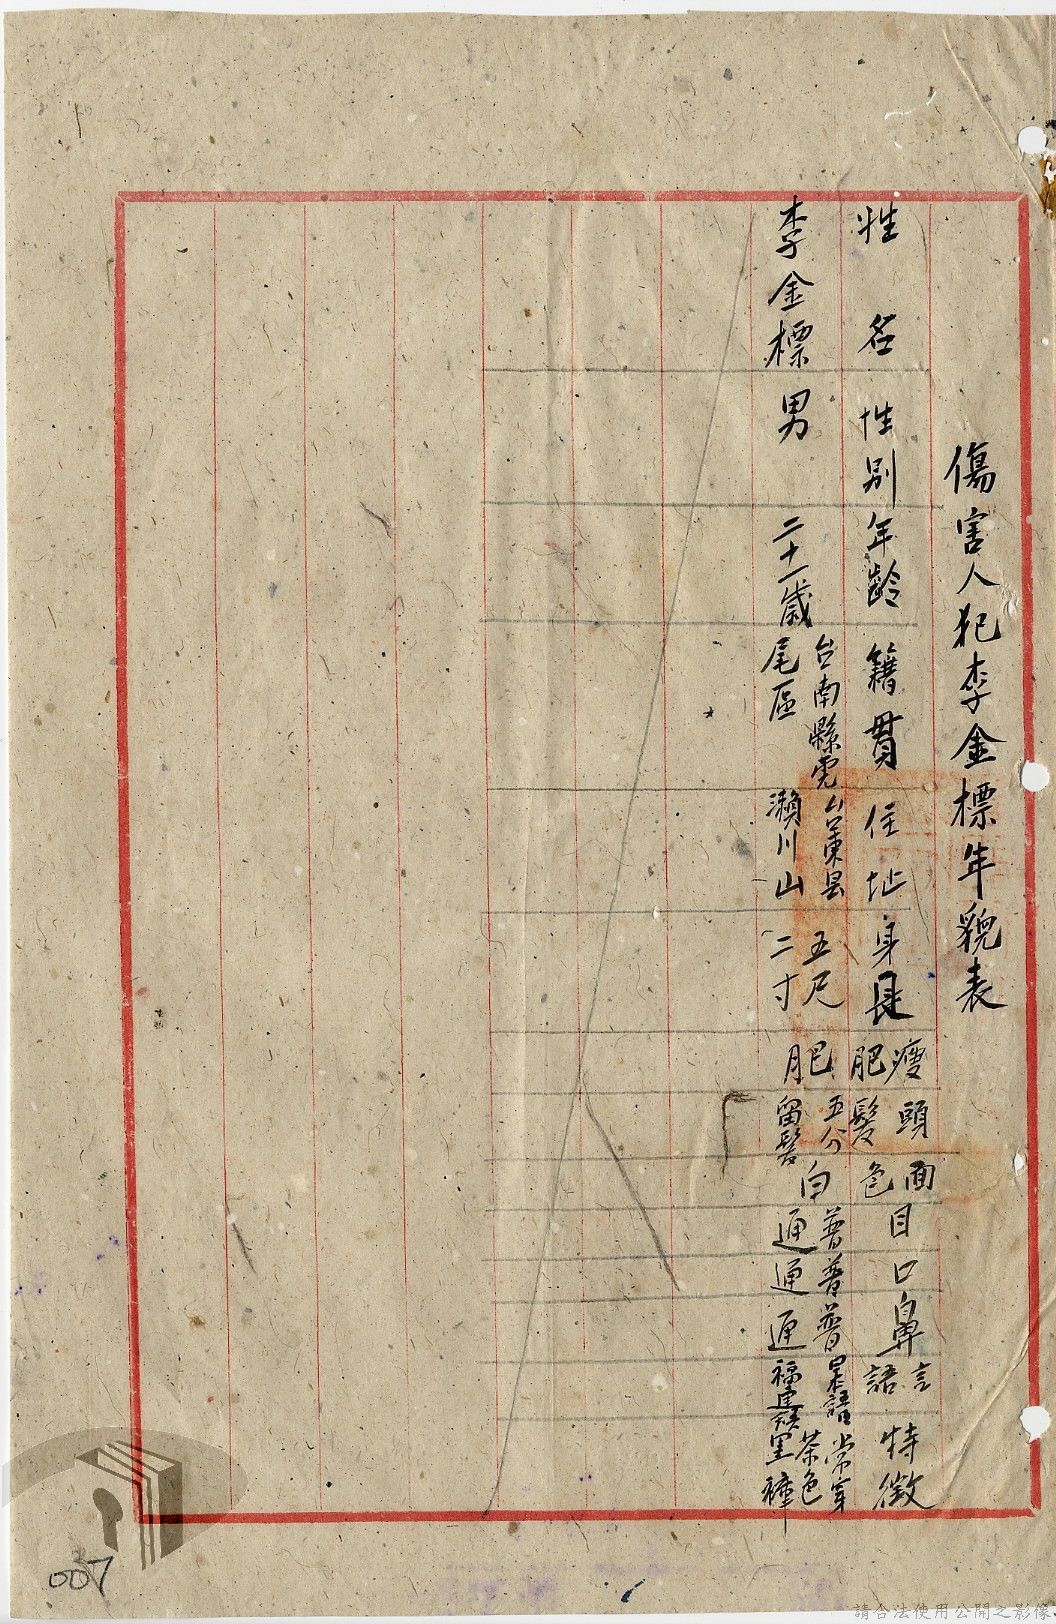 傷害人犯李金標年貌表
姓名 性別 年齡 籍貫 住址 身長 肥瘦 頭髮 面色 目 口 鼻 言語 特徵
李金標 男 二十一歲 台南縣虎尾區 台東县瀨川山 五尺二寸 肥 五分留髮 白 普通 普通 普通 日語福建 常穿茶色
007
請合法使用公開之影像